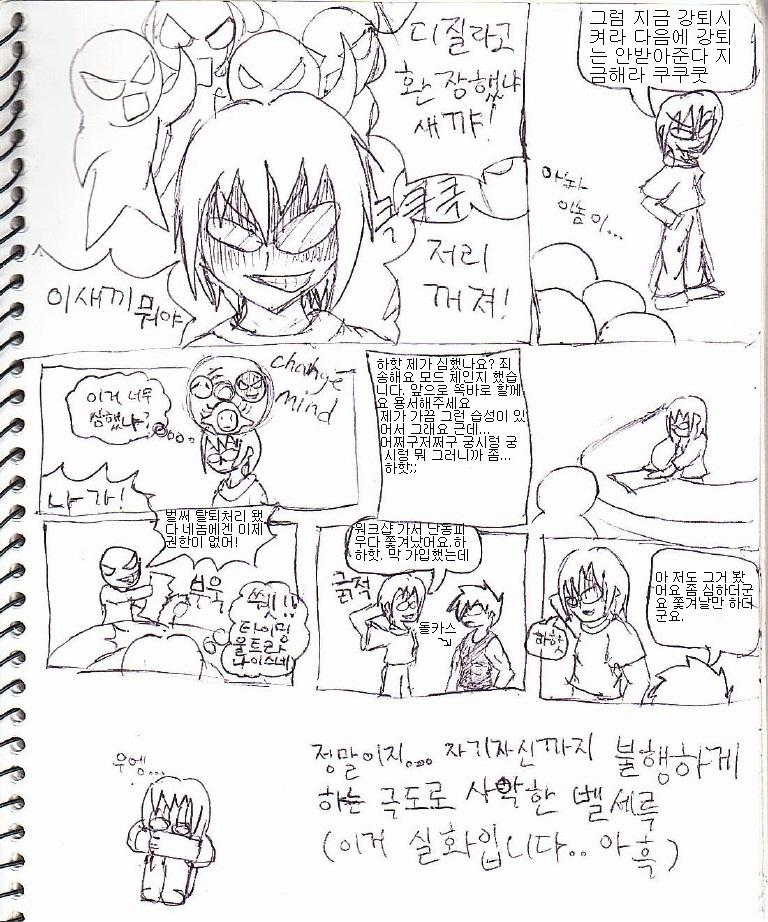 디질라고
환장했냐
새꺄!
큭큭큭
저리
꺼져!
이새끼 뭐야
그럼 지금 강퇴시
켜라 다음에 강퇴
는 안받아준다 지
금해라 쿠쿠쿳
아놔
이놈이...
change
mind
이거 너무
심했나?
나가!
하핫 제가 심했나요? 죄
송해요 모드 체인지 했습
니다. 앞으로 똑바로 할께
요 용서해주세요
제가 가끔 그런 습성이 있
어서 그래요 근데...
어쩌구저쩌구 궁시렁 궁
시렁 뭐 그러니까 좀...
하핫;;
벌써 탈퇴처리 됐
다 네놈에겐 이제
권한이 없어!
부욱
쒯!!
타이밍
울트라
나이스네
워크샵 가서 난동피
우다 쫓겨났어요.하
하핫. 막 가입했는데
긁적
돌카스
아 저도 그거 봤
어요 좀 심하더군
요 쫓겨날만 하더
군요.
하핫
우엥...
정말이지... 자기자신까지 불행하게
하는 극도로 사악한 벨세륵
(이거 실화입니다.. 아흑)